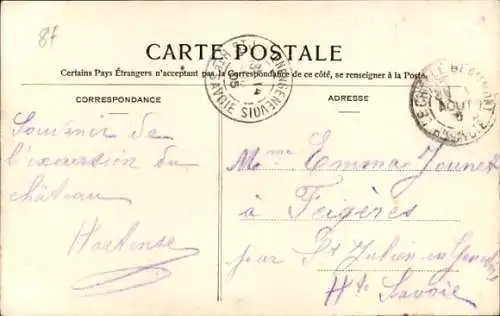 87
CARTE POSTALE
Certains Pays Étrangers n'acceptant pas la Correspondance de ce côté, se renseigner à la Poste.
CORRESPONDANCE
ADRESSE
Souvenir de
l'excursion du
château
Hortense
Mme Emma Jounet
à Feigères
par St Julien-en-Genevois
Hte Savoie
ST JULIEN-EN-GENEVOIS
HTE SAVOIE
05
AOUT